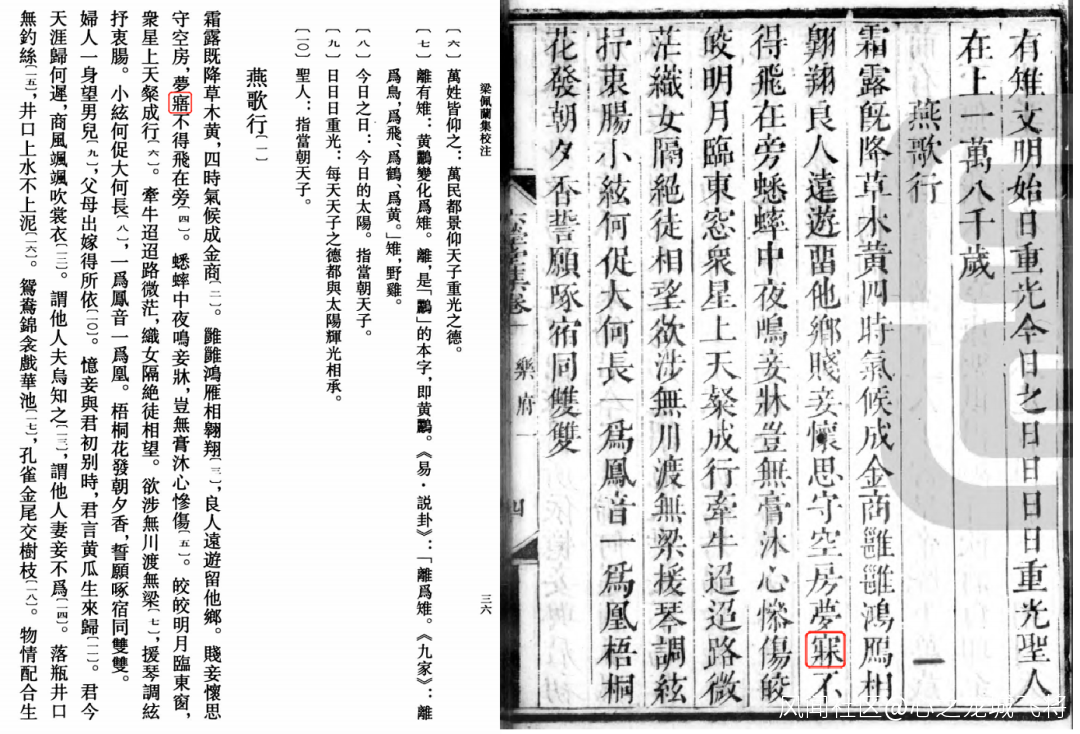 梁佩蘭集校注
三六
〔六〕萬姓皆仰之:萬民都景仰天子重光之德。
〔七〕離有雉:黄鸝變化爲雉。離,是「鸝」的本字,即黄鸝。《易·説卦》:「離爲雉。《九家》:離
爲鳥,爲飛、爲鶴、爲黄。」雉,野雞。
〔八〕今日之日:今日的太陽。指當朝天子。
〔九〕日日日重光:每天天子之德都與太陽輝光相承。
〔一〇〕聖人:指當朝天子。
燕歌行〔一〕
霜露既降草木黄,四時氣候成金商〔二〕。雝雝鴻雁相翱翔〔三〕,良人遠遊留他鄉。賤妾懷思
守空房,夢寤不得飛在旁〔四〕。蟋蟀中夜鳴妾牀,豈無膏沐心慘傷〔五〕。皎皎明月臨東窗,
衆星上天粲成行〔六〕。牽牛迢迢路微茫,織女隔絶徒相望。欲涉無川渡無梁〔七〕,援琴調絃
抒衷腸。小絃何促大何長〔八〕,一爲鳳音一爲凰。梧桐花發朝夕香,誓願啄宿同雙雙。
婦人一身望男兒〔九〕,父母出嫁得所依〔一〇〕。憶妾與君初别時,君言黄瓜生來歸〔一一〕。君今
天涯歸何遲,商風颯颯吹裳衣〔一二〕。謂他人夫烏知之〔一三〕,謂他人妻妾不爲〔一四〕。落瓶井口
無釣絲〔一五〕,井口上水不上泥〔一六〕。鴛鴦錦衾戲華池〔一七〕,孔雀金尾交樹枝〔一八〕。物情配合生
有雉文明始日重光今日之日日日日重光聖人
在上一萬八千歲
燕歌行
霜露旣降草木黄四時氣候成金商雝雝鴻鴈相
翱翔良人遠遊畱他鄉賤妾懷思守空房夢寐不
得飛在旁蟋蟀中夜鳴妾牀豈無膏沐心慘傷皎
皎明月臨東窓衆星上天粲成行牽牛迢迢路微
茫織女隔絕徒相望欲涉無川渡無梁援琴調絃
抒衷腸小絃何促大何長一爲鳳音一爲凰梧桐
花發朝夕香誓願啄宿同雙雙
六瑩堂集卷一
樂府一
四
风闻社区@心之龙城飞将